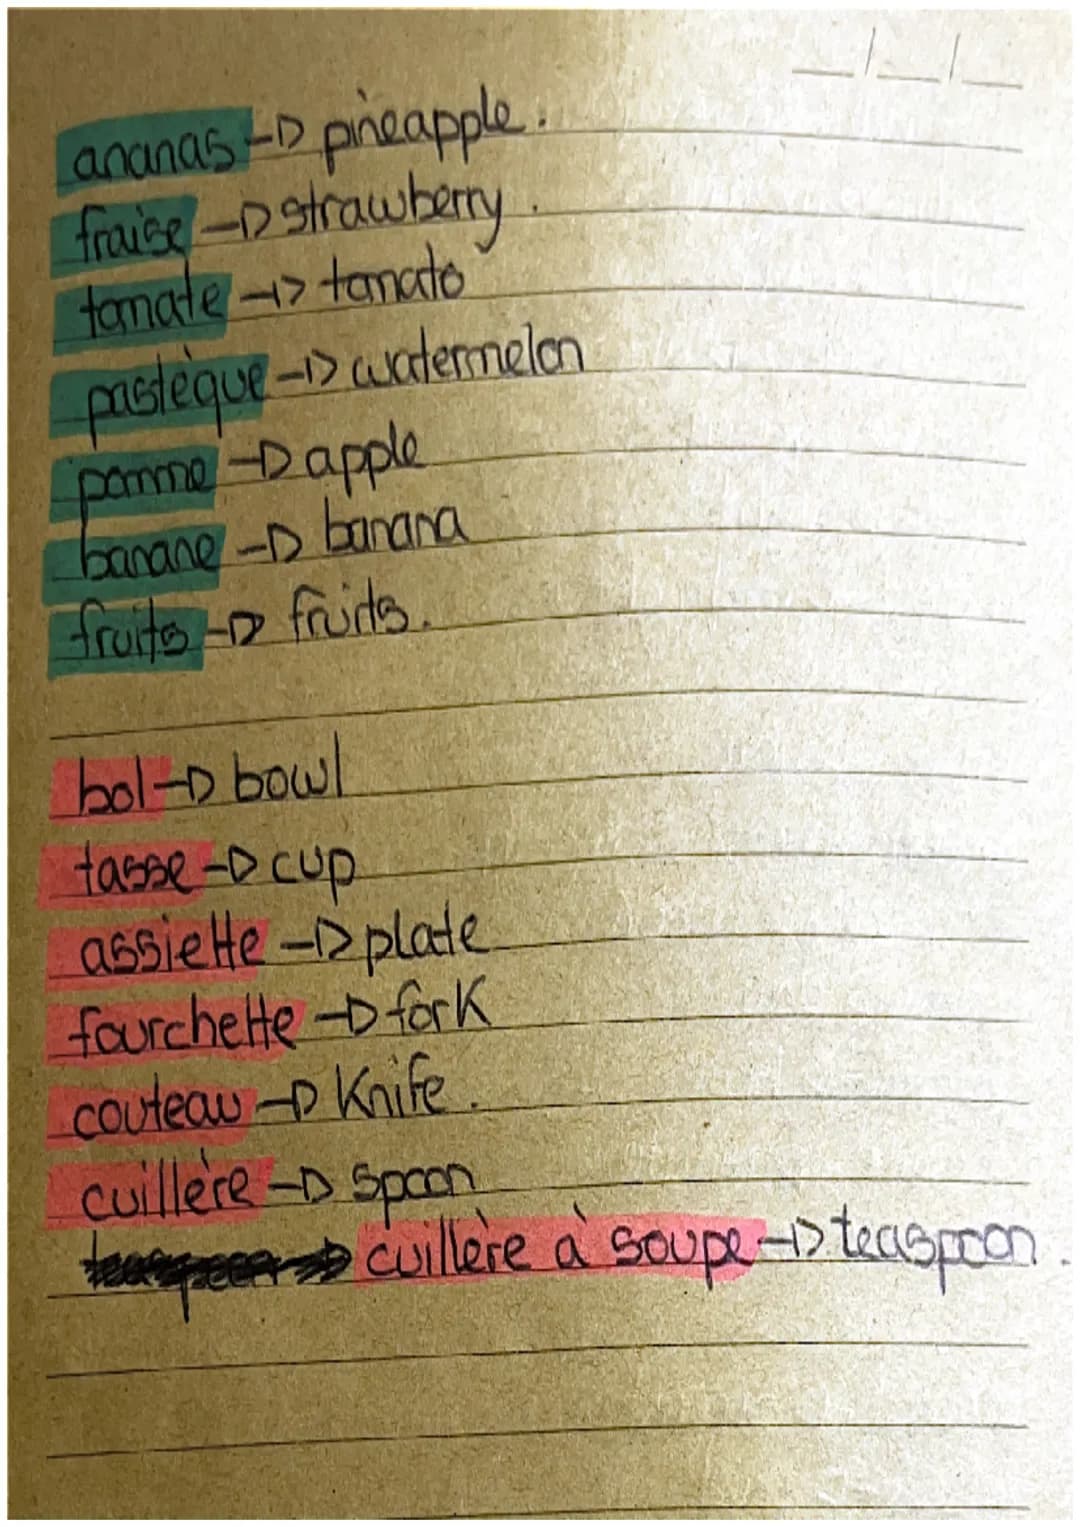 ananas → pineapple.
fraise → strawberry.
tomate → tomato
pastèque → watermelon
pomme → apple
banane → banana
fruits → fruits.
bol → bowl
tasse → cup
assiette → plate
fourchette → fork
couteau → Knife.
cuillère → spoon
cuillère à soupe → teaspoon.